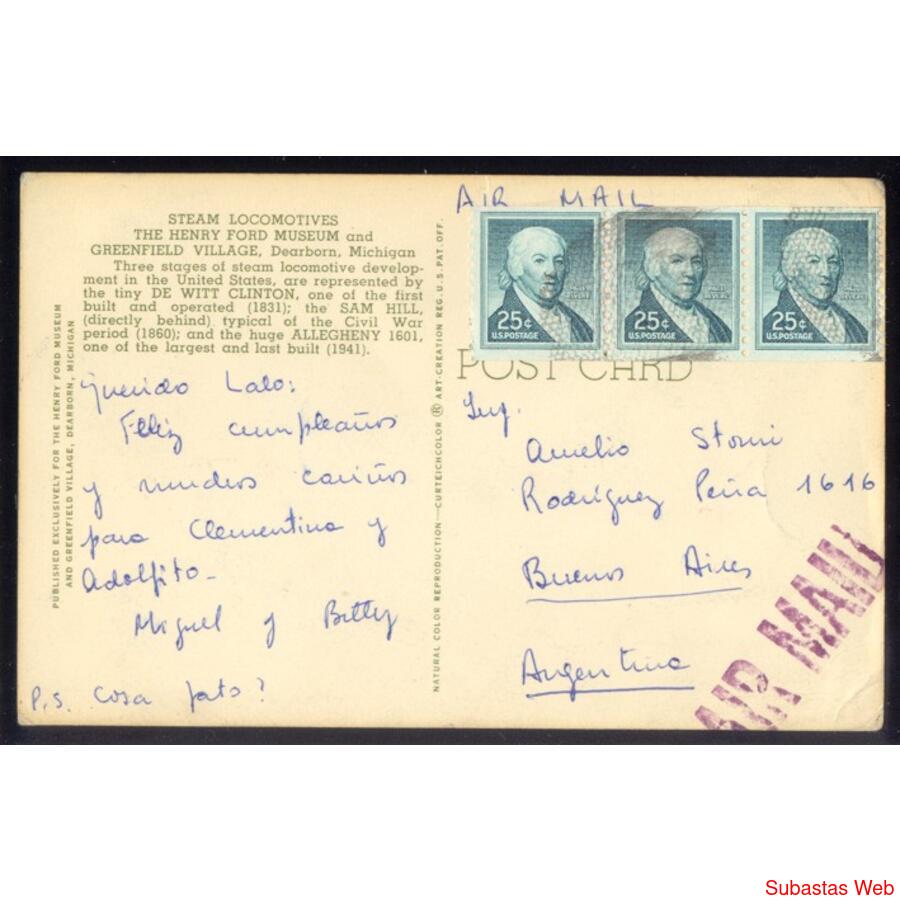 STEAM LOCOMOTIVES
THE HENRY FORD MUSEUM and
GREENFIELD VILLAGE, Dearborn, Michigan
Three stages of steam locomotive develop-
ment in the United States, are represented by
the tiny DE WITT CLINTON, one of the first
built and operated (1831); the SAM HILL,
(directly behind) typical of the Civil War
period (1860); and the huge ALLEGHENY 1601,
one of the largest and last built (1941).
PUBLISHED EXCLUSIVELY FOR THE HENRY FORD MUSEUM
AND GREENFIELD VILLAGE, DEARBORN, MICHIGAN
Querido Lalo:
Feliz cumpleaños
y muchos cariños
para Clementina y
Adolfito-
Miguel y Betty
P.S. Cosa fato?
NATURAL COLOR REPRODUCTION—CURTEICHCOLOR ® ART-CREATION REG. U.S. PAT. OFF.
AIR MAIL
25¢
U.S. POSTAGE
25¢
U.S. POSTAGE
25¢
U.S. POSTAGE
POST CARD
Ing.
Amelio Storni
Rodríguez Peña 1616
Buenos Aires
Argentina
AIR MAIL
Subastas Web